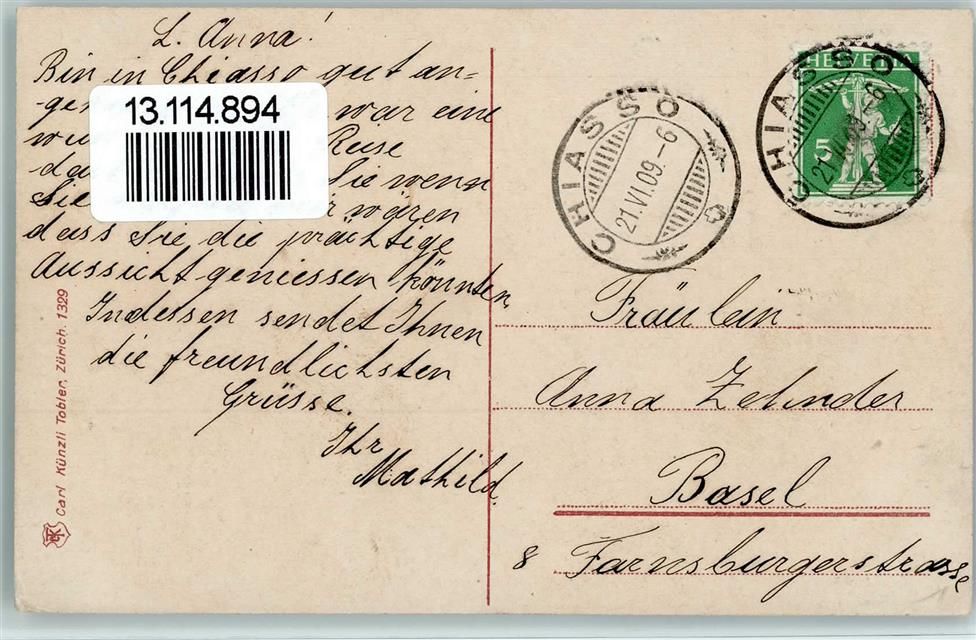 L. Anna!
Bin in Chiasso gut an-
war eine
Reise
Sie wenn
Sie waren
dass Sie die prächtige
Aussicht geniessen könnten,
Indessen sendet Ihnen
die freundlichsten
Grüsse.
Ihr
Mathild.
13.114.894
Carl Künzli Tobler, Zürich. 1329
CHIASSO
21.VI.09.-6
HELVETIA
5
CHIASSO
Fräulein
Anna Zehnder
Basel
8 Farnsburgerstrasse